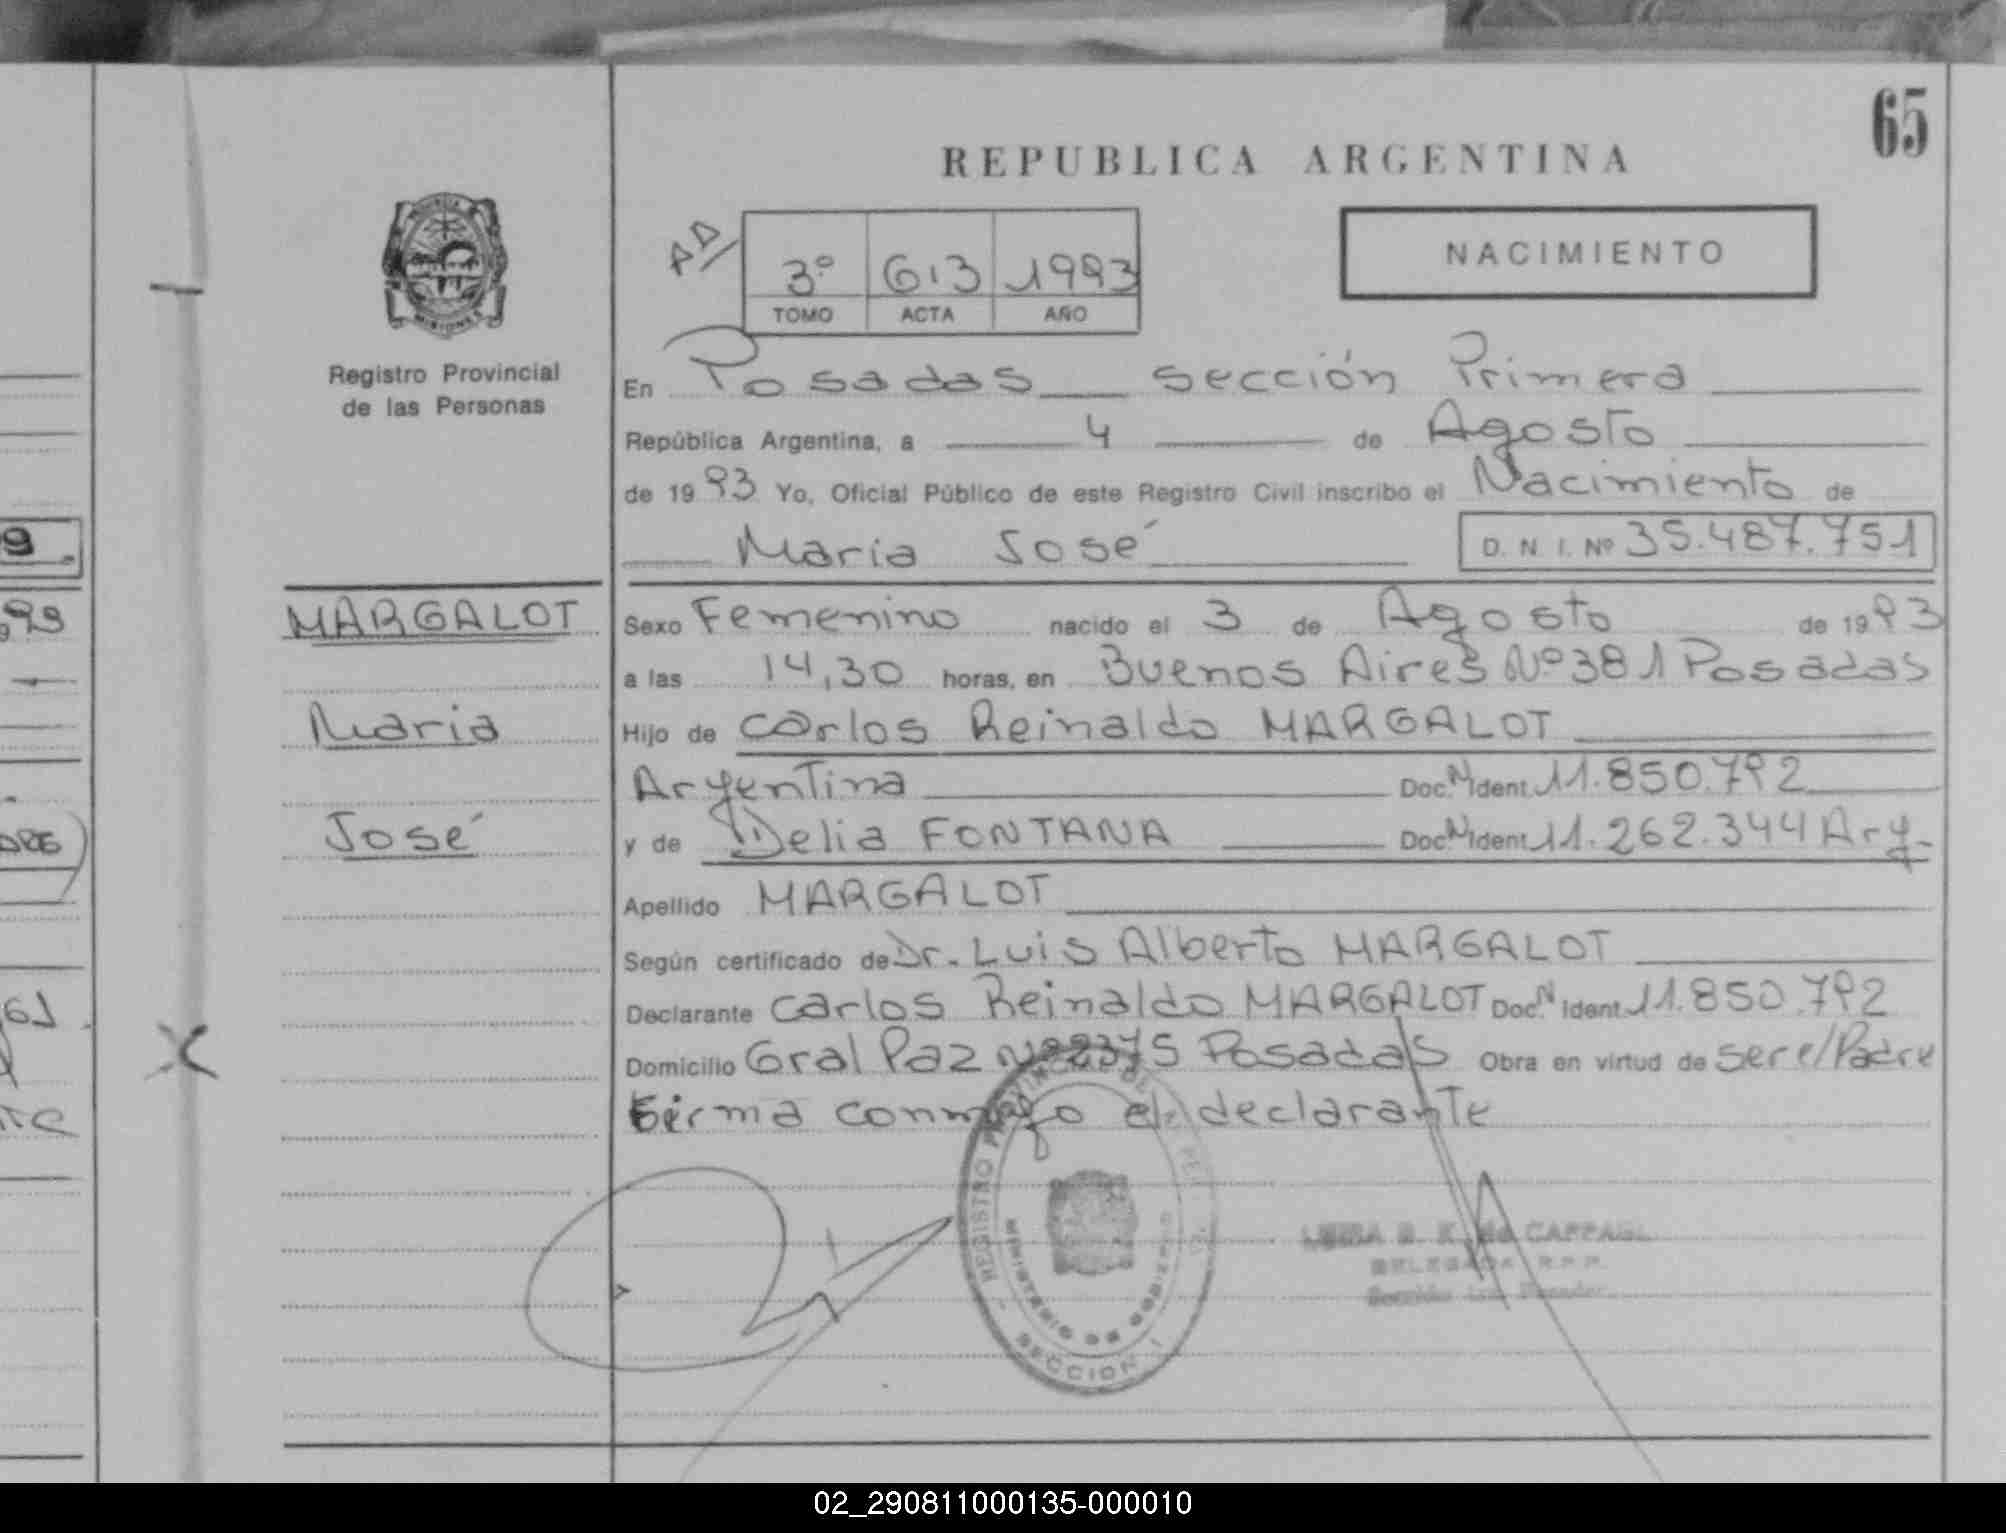 65
REPUBLICA ARGENTINA
AD/
3º 613 1993
TOMO ACTA AÑO
NACIMIENTO
MISIONES
Registro Provincial
de las Personas
En Posadas sección Primera
República Argentina, a 4 de Agosto
de 1993 Yo, Oficial Público de este Registro Civil inscribo el Nacimiento de
Maria José D. N. I. Nº 35.487.751
MARGALOT
Maria
José
Sexo Femenino nacido el 3 de Agosto de 1993
a las 14,30 horas, en Buenos Aires Nº 381 Posadas
Hijo de Carlos Reinaldo MARGALOT
Argentina Doc. N Ident. 11.850.792
y de Delia FONTANA Doc. N Ident. 11.262.344 Arg.
Apellido MARGALOT
Según certificado de Dr. Luis Alberto MARGALOT
Declarante Carlos Reinaldo MARGALOT Doc. N Ident. 11.850.792
Domicilio Gral Paz Nº 2375 Posadas Obra en virtud de ser e/Padre
Firma conmigo el declarante
REGISTRO PROVINCIAL DE
MINISTERIO DE GOBIERNO
SECCION 1
B. K. de
DELEGADA R.P.P.
02_290811000135-000010